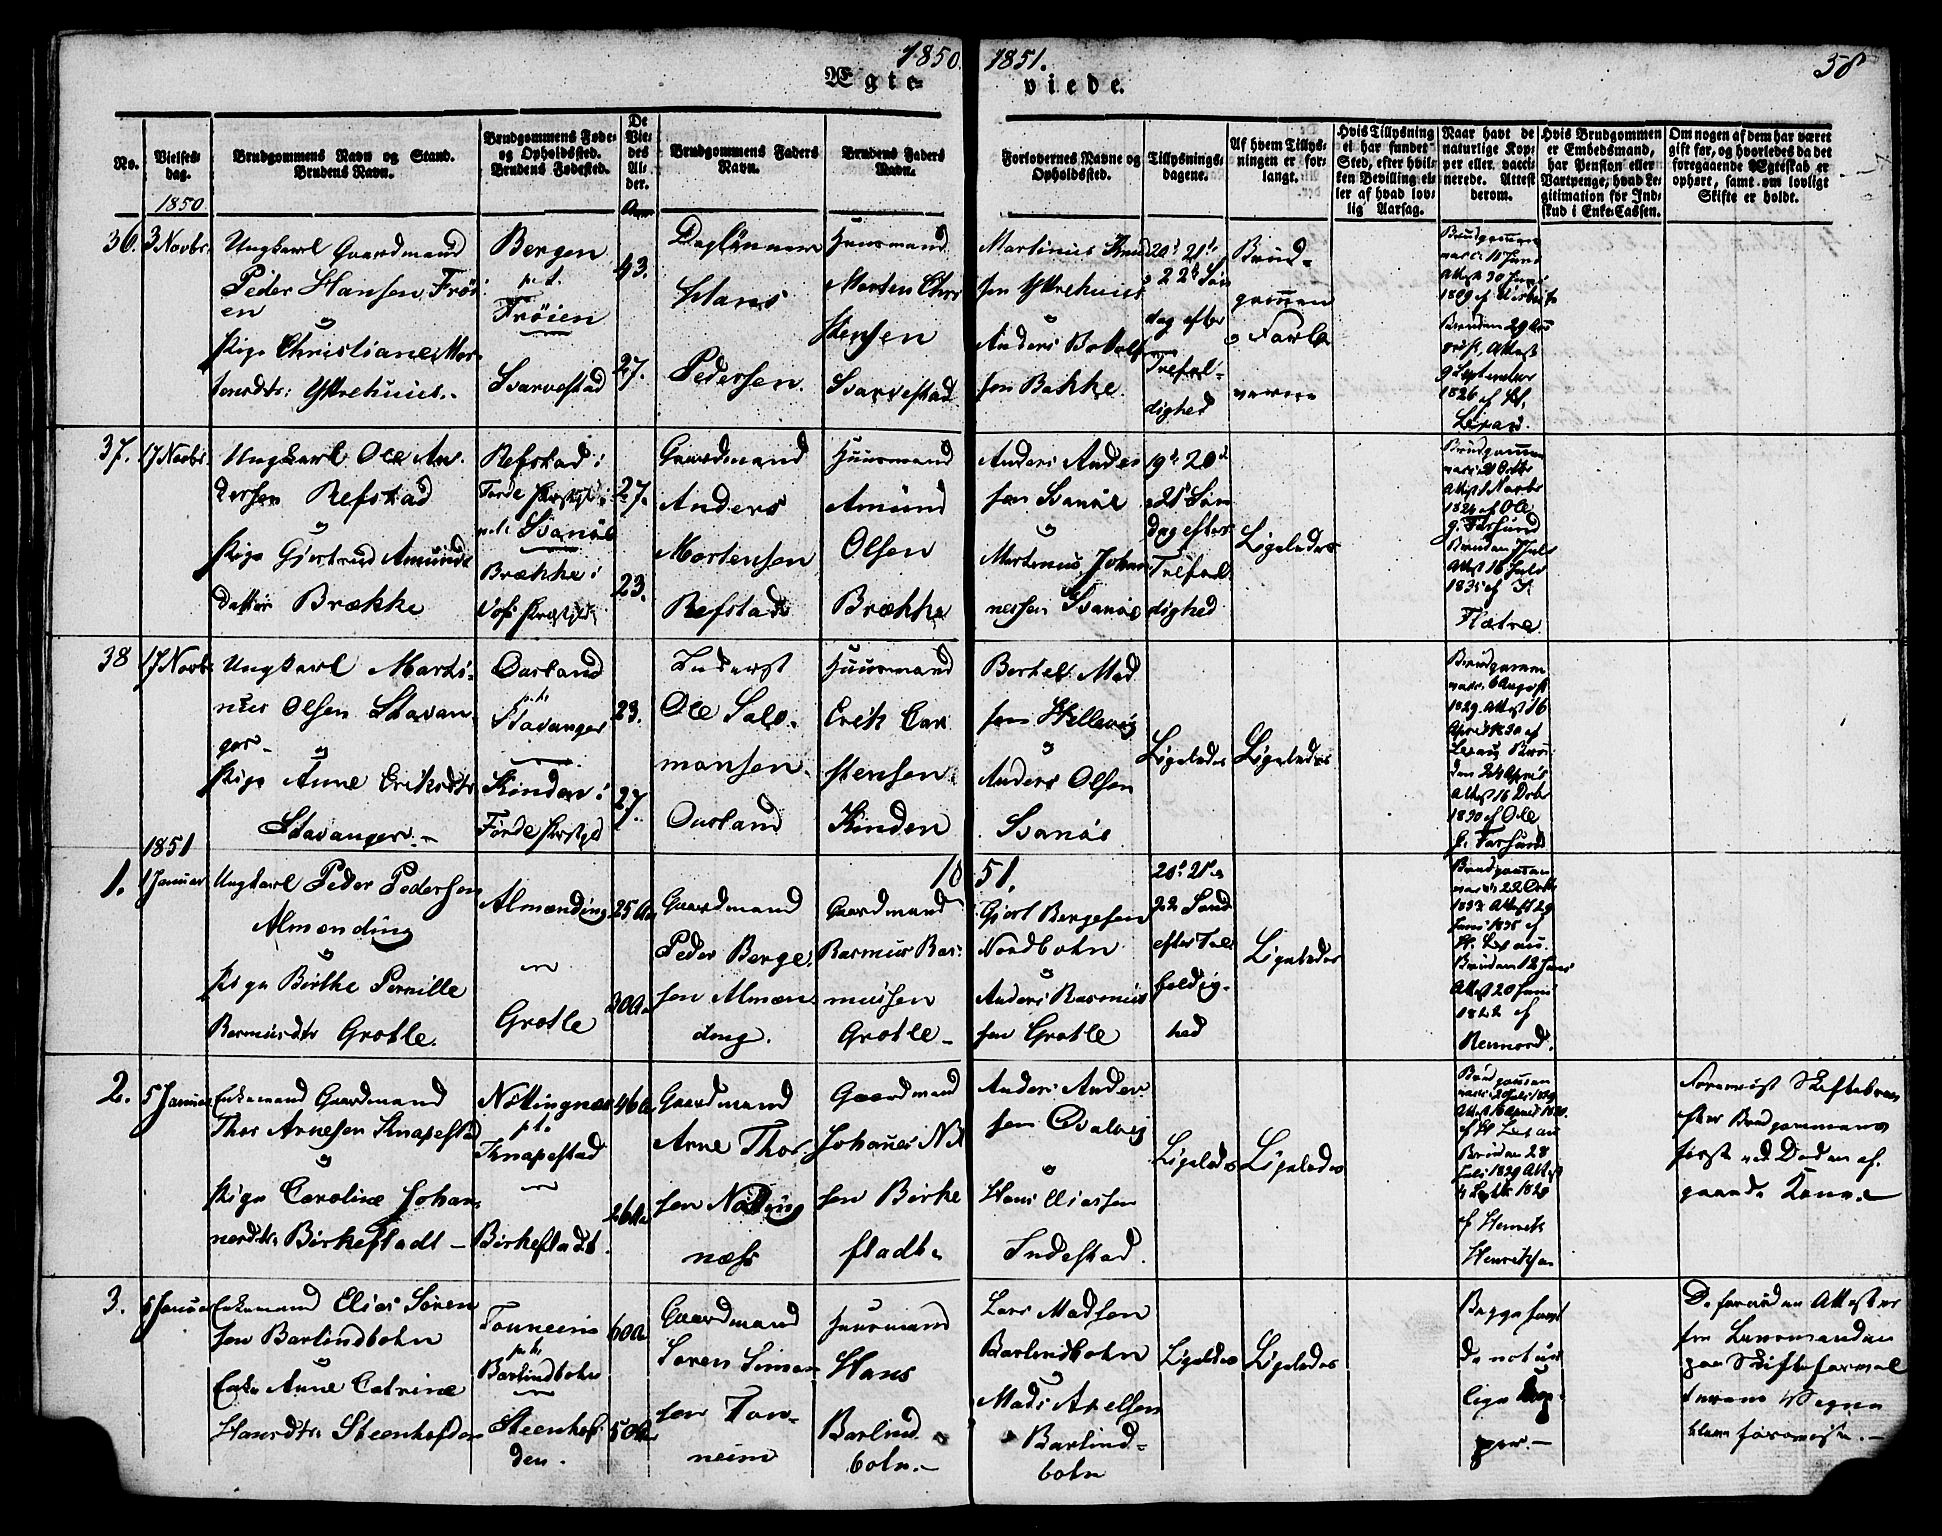 1850. 1851. 38
Ægte- viede.
No.
Vielses-
dag.
1850
Brudgommens Navn og Stand.
Brudens Navn.
Brudgommens Føde-
og Opholdssted.
Brudens Fødested.
De
Vie-
des
Al-
der.
Brudgommens Faders
Navn.
Brudens Faders
Navn.
Forlovernes Navne og
Opholdssted.
Tillysnings-
dagene.
Af hvem Tillys-
ningen er for-
langt.
Hvis Tillysning
ei har fundet
Sted, efter hvil-
ken Bevilling el-
ler af hvad lov-
lig Aarsag.
Naar havt de
naturlige Kop-
per eller vacci-
nerede. Attest
derom.
Hvis Brudgommen
er Embedsmand,
har Pension eller
Vartpenge, hvad Le-
gitimation for Ind-
skud i Enke-Cassen.
Om nogen af dem har været
gift før, og hvorledes da det
foregaaende Ægteskab er
ophørt, samt om lovligt
Skifte er holdt.
36.
3 Novbr.
Ungkarl Gaardmand
Peder Hansen Frøi
en
og
Pige Christiane Mor-
tensdtr: Ytrehuus.
Bergen
p.t.
Frøien
Svarvestad
43.
27.
Daglønner
Hans
Pedersen.
Huusmand
Morten Chri
stensen
Svarvestad
Martinus Knud
sen Ytrehuus
og
Anders Botolf
sen Bakke.
20d 21d
o 22d Søn
dag efter
Trefol-
dighed
Brud-
gommen
o Forlo
verne
Brudgommen
vacc: 11 Juni
Attest 30 Juni
Bruden 29 Au
gust, Attest
9 September
1826 af
37.
17 Novbr.
Ungkarl Ole An-
dersen Refstad
og
Pige Gjertrud Amunds
datter Brække
Refstad i
Førde Præstgjd
p.t. Svanøe
Brække i
Vos Præstgjd
27.
23.
Gaardmand
Anders
Mortensen
Refstad
Huusmand
Amund
Olsen
Brække
Anders Ander
sen Svanøe
og
Martinus Johan
nessen Svanøe
19d 20d
o 21d Søn
dag efter
Trefol
dighed
Ligeledes
Brudgommen
Attest 1 Novbr
1824 af Ole
J. Farsund
Bruden
Attest 16 Juli
1835 af
Flatre
38
17 Novbr.
Ungkarl Marti-
nus Olsen Stavan-
ger
og
Pige Anne Eriksdtr
Stavanger.
Ousland
p.t.
Stavanger
Kinden i
Førde Præstgjd
23.
27.
Inderst
Ole Salo-
monsen.
Ousland
Huusmand
Erik Car
stensen
Kinden
Bertel Mad
sen Hellevig
og
Anders Olsen
Svanøe
Ligeledes
Ligeledes
Brudgommen
vacc: 6 August
1829 Attest 16
April 1830 af
Lexau Bru
den 24 April
Attest 16 Octbr
1830 af Ole
J. Farsund
1851
1851.
1.
1 Januar
Ungkarl Peder Pedersen
Almending
og
Pige Birthe Pernille
Rasmusdtr Grotle.
Almending
Grotle
25 Aar
30 Aar
Gaardmand
Peder Berge-
sen Almen
ding.
Gaardmand
Rasmus Ras-
mussen
Grotle
Gjert Bergesen
Nordbotn
og
Anders Rasmus
sen Grotle
20d 21d o
22 Sønd
efter Tre
foldig-
hed
Ligeledes
Brudgommen
vacc: 22 Octbr
Attest 29
Juni 1835 af
H. Lexau.
Bruden 12 Juni
Attest 20 Juni
1822 af
Rennord.
2.
5 Januar
Enkemand Gaardmand
Thor Arnesen Knapestad
og
Pige Caroline Johan-
nesdtr. Birkefladt
Nøttingnæs
p.t.
Knapestad
Birkefladt.
46 Aar
26 Aar
Gaardmand
Arne Thor
sen Nøtting
næs
Gaardmand
Johannes Nil
sen Birke
fladt.
Anders Ander
sen Qvalvig
og
Hans Eliassen
Indestad.
Ligeledes
Ligeledes
Brudgommen
vacc: 2 Juli 1829
Attest 16 April 1830.
af H Lexau
Bruden 28
Juli 1829 Attest
4 Septbr 1829
af Henrik
Henriksen
Forevist Skiftebrev
efter Brudgommens
første ved Døden af-
gaaede Kone.
3.
5 Januar
Enkemand Elias Søren
sen Barlindbotn
og
Enke Anne Catrine
Hansdtr. Steenhofden
Tonneim
p.t.
Barlindbotn
Steenhof-
den.
60 Aar
50 Aar
Gaardmand
Søren Simon
sen Ton-
neim
Huusmand
Hans
Barlind
botn.
Lars Madsen
Barlindbotn
Mads Axelsen
Barlind-
botn
Ligeledes
Ligeledes
Begge havt
de natur
lige Kop-
per.
De fornødne Attester
fra Lensmanden
paa Skifteforval
terens Vegne
bleve foreviste.